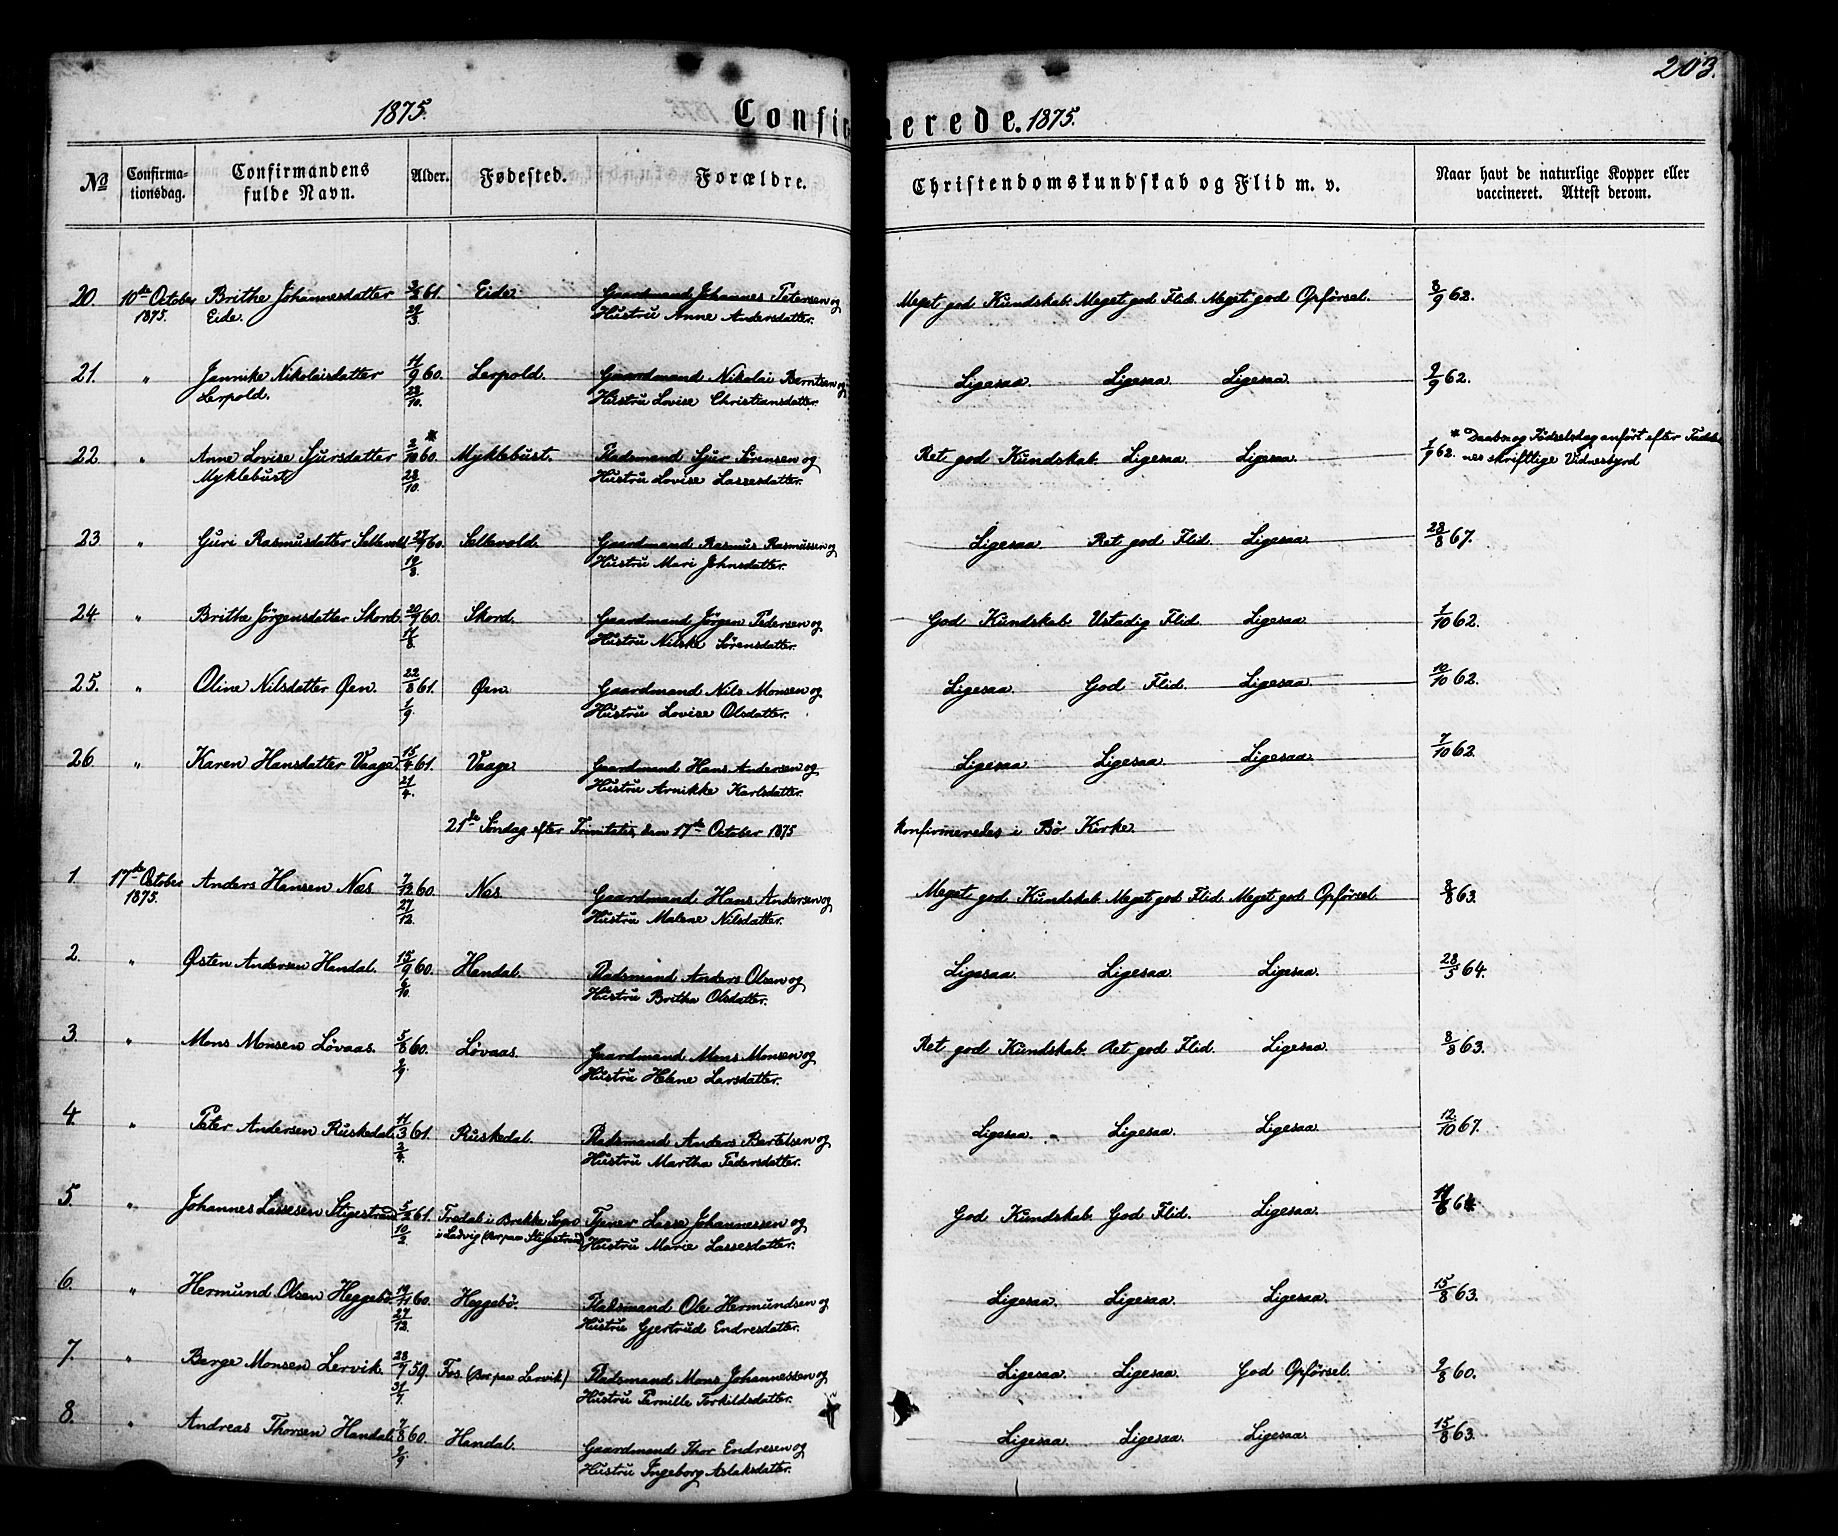 203.
1875. Confirmerede. 1875.
No Confirma-tionsdag. Confirmandens fulde Navn. Alder. Fødested. Forældre. Christendomskundskab og Flid m. v. Naar havt de naturlige Kopper eller vaccineret. Attest derom.
20. 10de October Brithe Johannesdatter 61. Eide Gaardmand Johannes Petersen og Meget god Kundskab. Meget god Flid. Meget god Opførsel. 8/9 62.
1875. Eide. Hustru Anne Andersdatter.
21. " Jannike Nikolaisdatter 11/9 60. Lerpold. Gaardmand Nikolai Berntsen og Ligesaa Ligesaa Ligesaa 9/9 62.
Lerpold. 28/10. Hustru Lovise Christiansdatter.
22 " Anne Lovise Sjursdatter 2/10 60. * Myklebust. Pladsmand Sjur Sørensen og Ret god Kundskab. Ligesaa. Ligesaa. 1/9 62. * Daabs og Fødselsdag anført efter Fadder-
Myklebust 28/10. Hustru Lovise Lassesdatter. nes skriftlige Vidnesbyrd
23 " Guri Rasmusdatter Sellevold 27/7 60. Sellevold. Gaardmand Rasmus Rasmussen og Ligesaa Ret god Flid. Ligesaa 28/8 67.
19/8. Hustru Mari Johnsdatter.
24 " Brithe Jørgensdatter Skord. 20/7 60. Skord. Gaardmand Jörgen Pedersen og God Kundskab. Ustadig Flid Ligesaa 1/10 62.
11/8. Hustru Nilske Sørensdatter.
25. " Oline Nilsdatter Øen. 22/8 61. Øen Gaardmand Nils Monsen og Ligesaa. God Flid. Ligesaa 10/10 62.
1/9. Hustru Lovise Olsdatter.
26 " Karen Hansdatter Vaage. 15/4 61. Vaage Gaardmand Hans Andersen og Ligesaa Ligesaa Ligesaa 7/10 62.
21/4. Hustru Arnikke Karlsdatter.
21de Søndag efter Trinitatis, den 17de October 1875 konfirmeredes i Bö Kirke.
1 17de October Anders Hansen Næs 7/12 60. Næs Gaardmand Hans Andersen og Meget god Kundskab. Meget god Flid Meget god Opførsel. 8/8 63.
1875. 27/12. Hustru Malene Nilsdatter.
2. " Østen Andersen Handal. 15/9 60. Handal. Pladsmand Anders Olsen og Ligesaa Ligesaa. Ligesaa. 28/5 64.
6/10. Hustru Britha Olsdatter.
3. " Mons Monsen Løvaas. 5/8 60. Løvaas. Gaardmand Mons Monsen og Ret god Kundskab. Ret god Flid. Ligesaa. 8/8 63.
2/9. Hustru Helene Larsdatter.
4. " Peter Andersen Ruskedal 11/3 61. Ruskedal. Pladsmand Anders Bertelsen og Ligesaa. " Ligesaa. Ligesaa. 12/10 67.
2/4. Hustru Martha Pedersdatter.
5. " Johannes Lassesen Stigestrand 5/2 61. Tredal i Brekke Sogn Tjener Lasse Johannessen og God Kundskab. God Flid. Ligesaa.
10/2. i Ladvig (Bor paa Stigestrand) Hustru Marie Lassesdatter.
6. " Hermund Olsen Heggebö. 19/11 60. Heggebö. Pladsmand Ole Hermundsen og Ligesaa. Ligesaa. Ligesaa. 15/8 63.
27/12. Hustru Gjertrud Endresdatter.
7. " Børge Monsen Lervik. 28/7 59. Fos (Bor paa Lervik) Pladsmand Mons Johannessen og Ligesaa. Ligesaa. God Opførsel. 9/8 60.
31/7. Hustru Pernille Torkildsdatter.
8. " Andreas Thorsen Handal. 7/8 60. Handal. Gaardmand Thor Endresen og Ligesaa. Ligesaa. Ligesaa. 15/8 63.
2/9. Hustru Ingeborg Aslaksdatter.